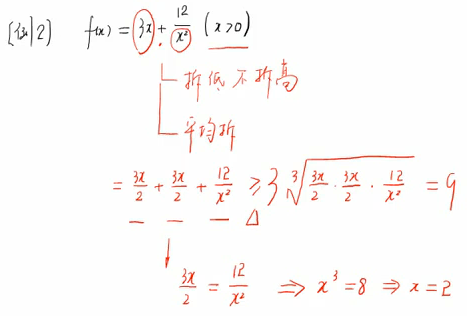 [例2] f(x) = 3x + 12/x² (x>0)
拆低不拆高
平均拆
= 3x/2 + 3x/2 + 12/x² ≥ 3 ∛(3x/2 · 3x/2 · 12/x²) = 9
3x/2 = 12/x² ⇒ x³ = 8 ⇒ x = 2